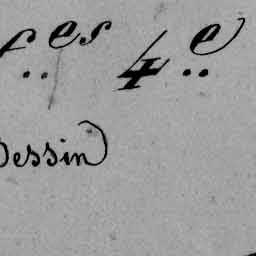 fes 4e
Dessin)